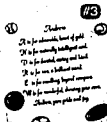 #3
Andrew
A is for adorable, heart of gold
N is for naturally intelligent and
D is for devoted, caring and kind
R is for rare, a brilliant mind
E is for excelling beyond compare
W is for wonderful, knowing you care
Andrew, your pride and joy